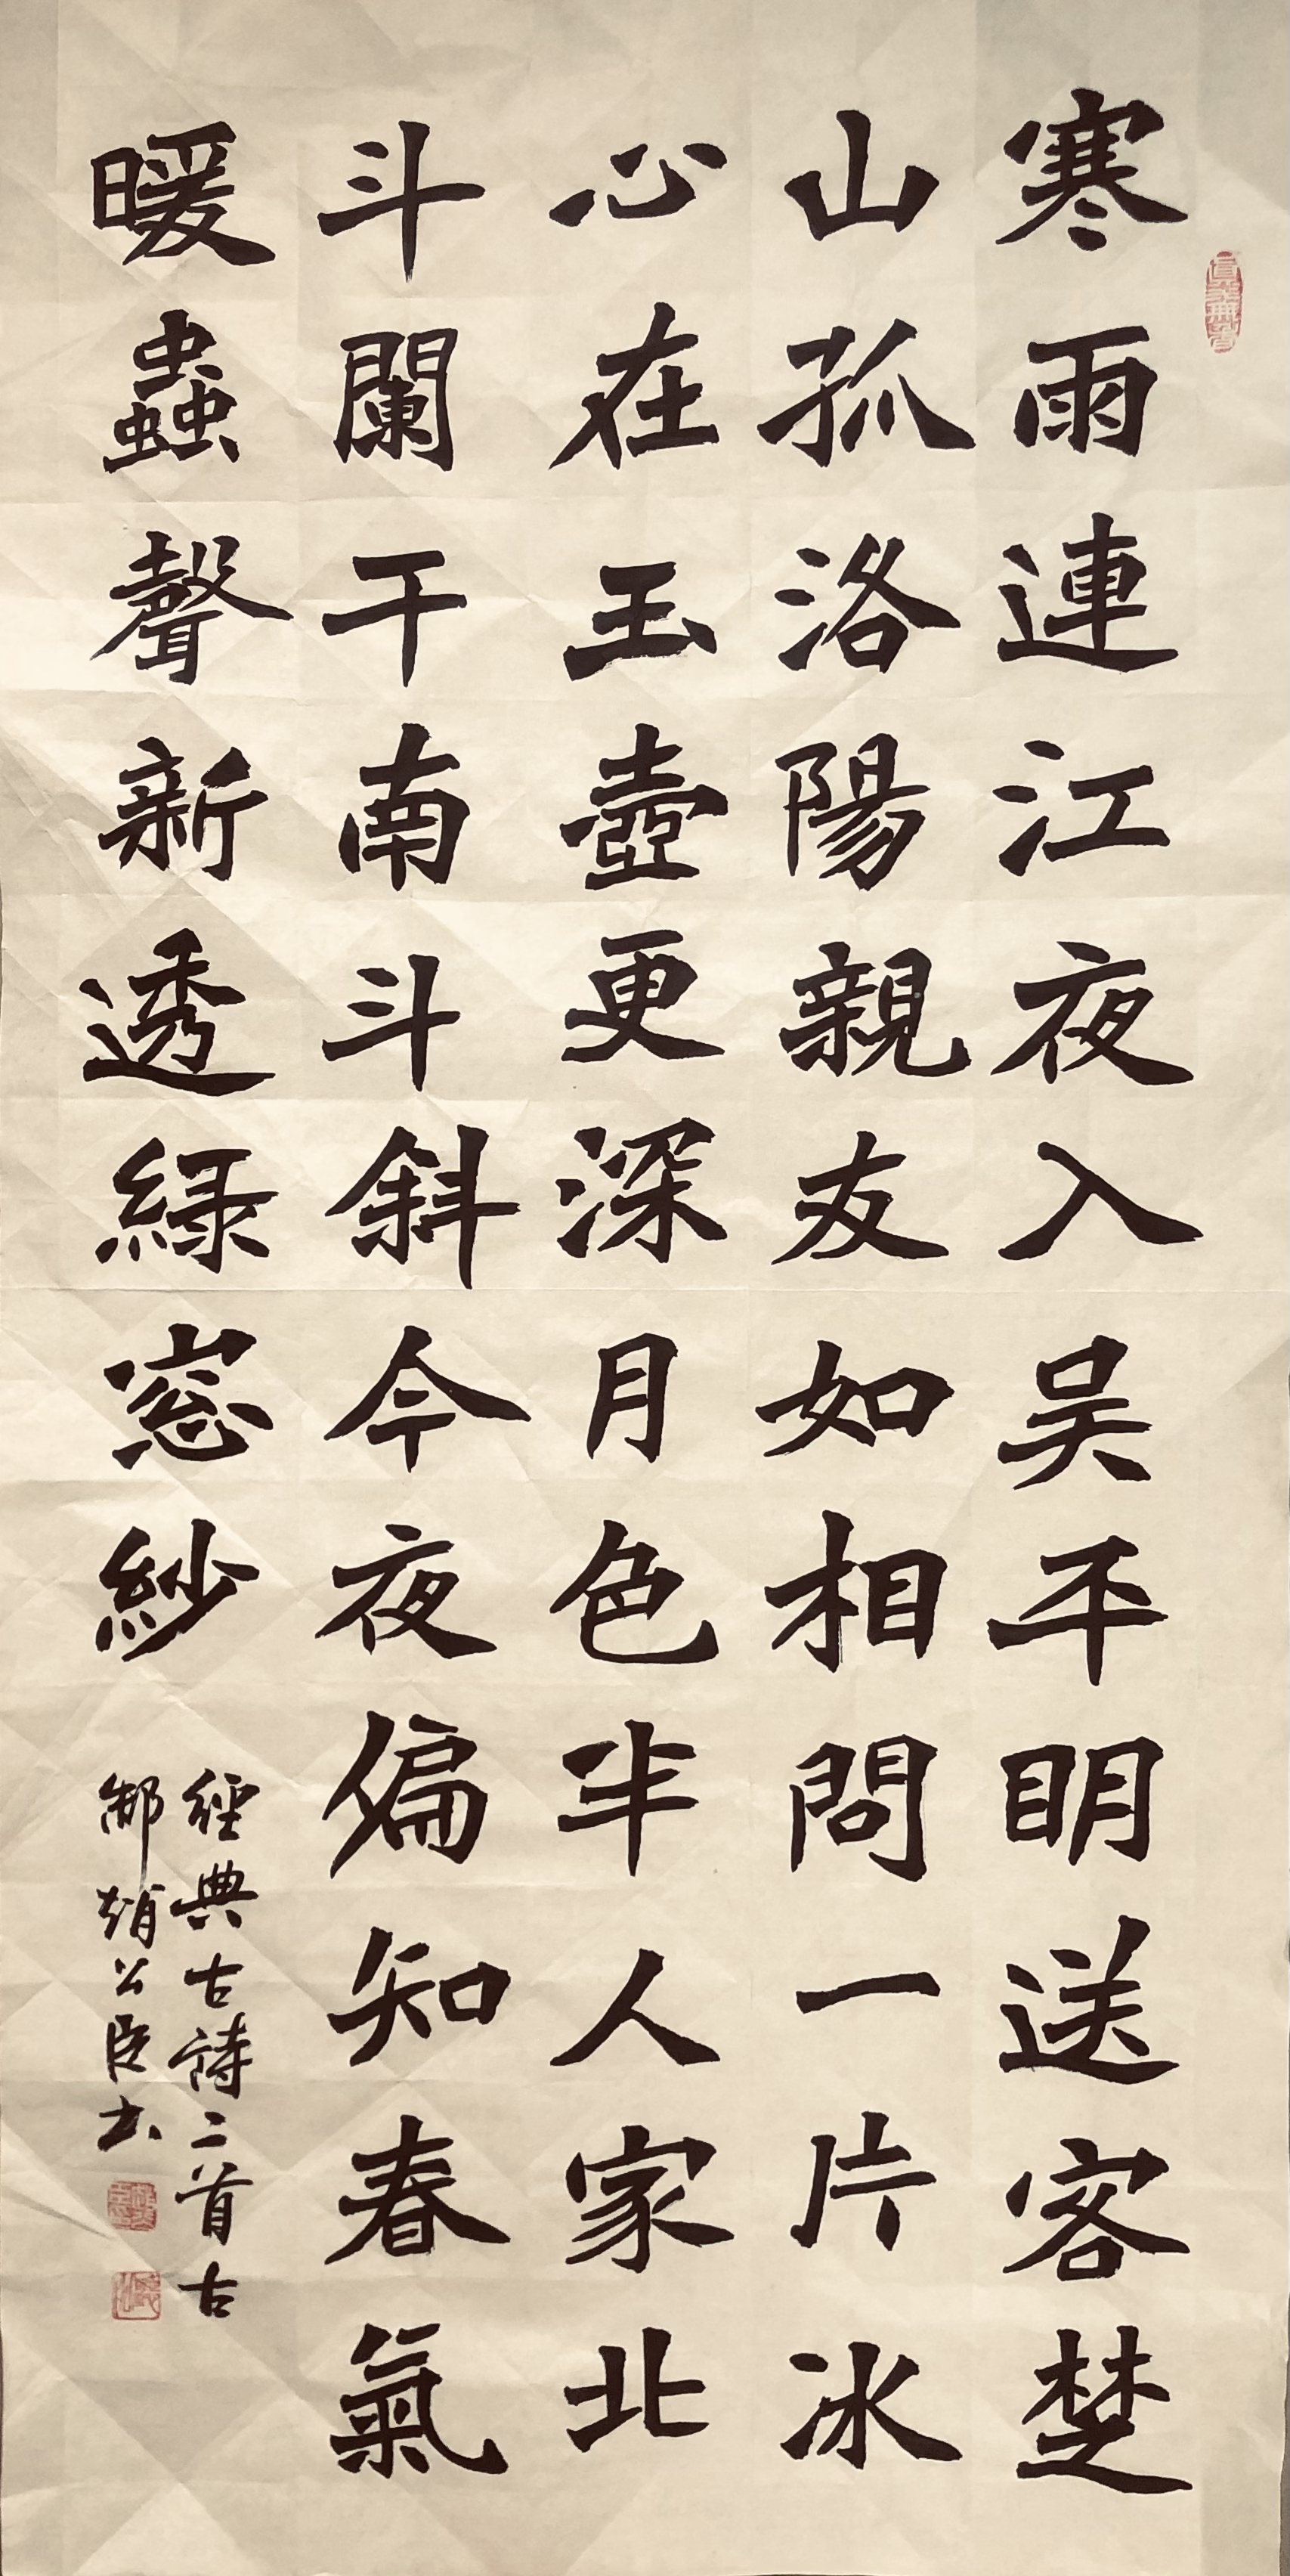 寒雨連江夜入吴平明送客楚
山孤洛陽親友如相問一片冰
心在玉壺更深月色半人家北
斗闌干南斗斜今夜偏知春氣
暖蟲聲新透緑窓紗
經典古詩二首古
鄃趙公臣书